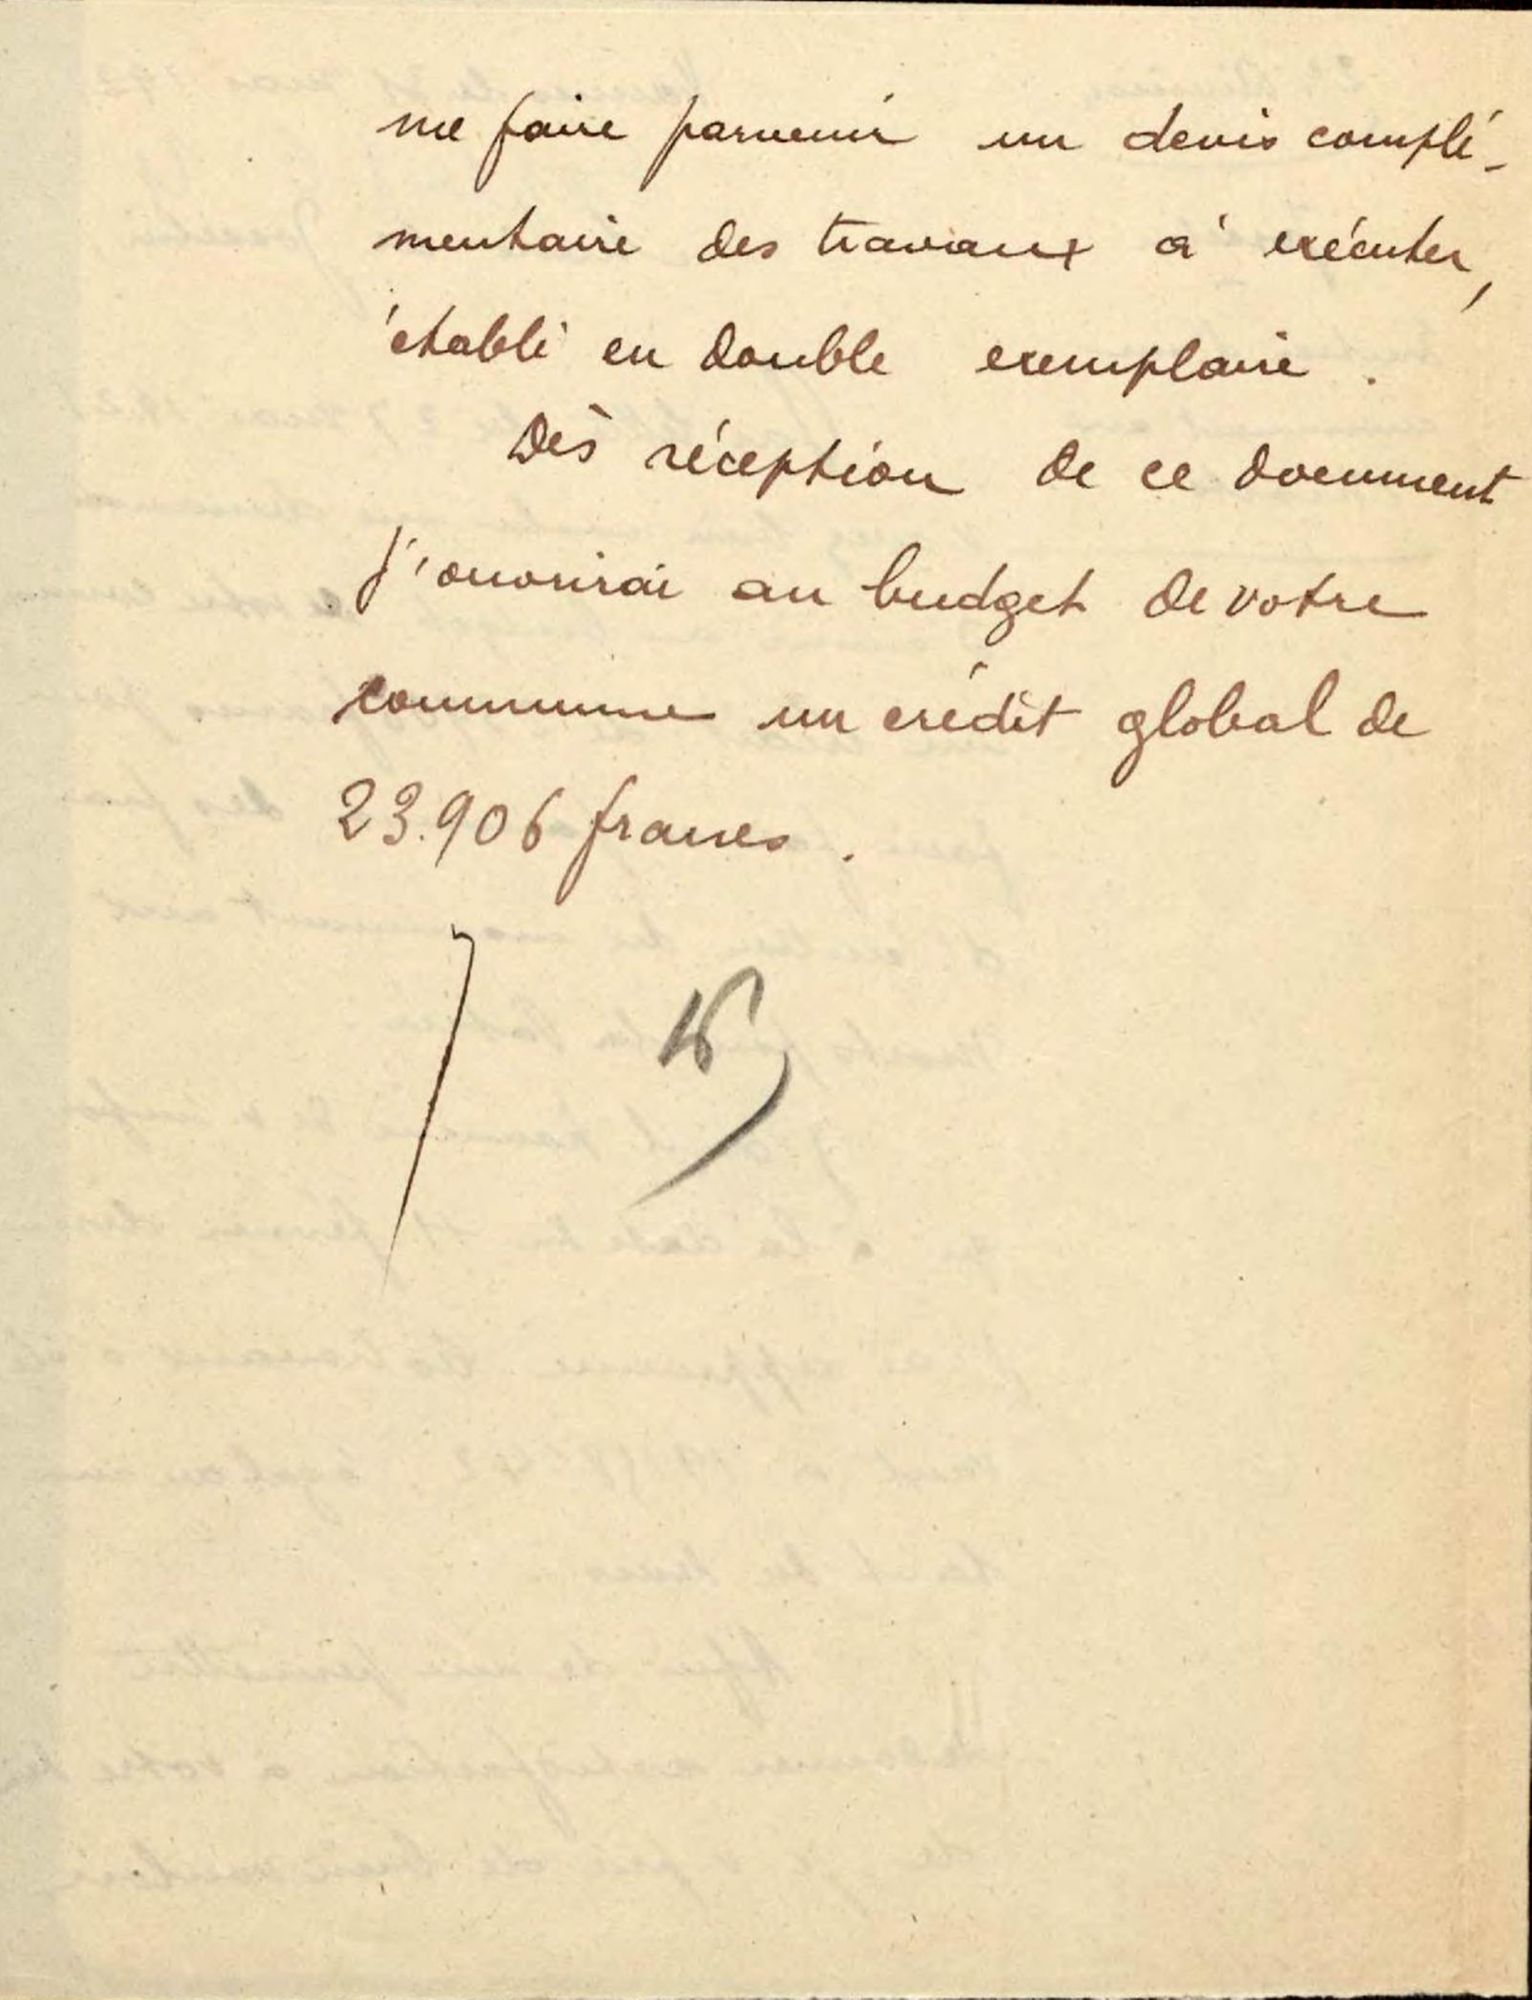 me faire parvenir un devis complé-
mentaire des travaux à exécuter,
établi en double exemplaire.
Dès réception de ce document
j'ouvrirai au budget de votre
commune un crédit global de
23.906 francs.